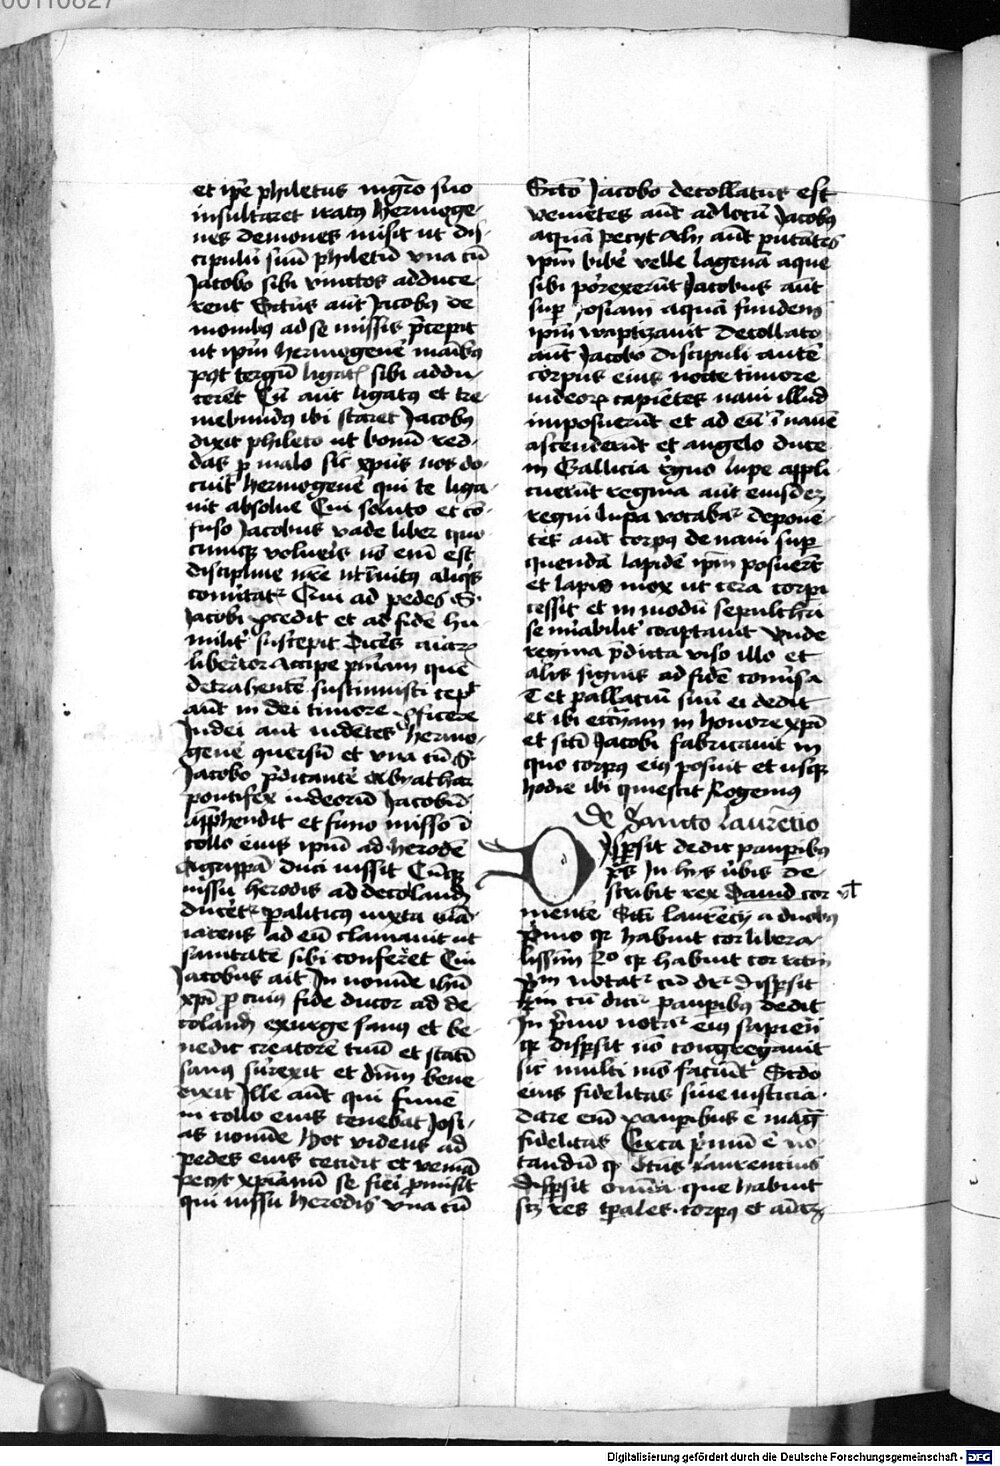 00110827
et ip̄e philetus mgr̄o suo
insultaret iratꝯ hermoge-
nes demones misit ut dis-
cipulū suū philetū vna cū
Jacobo sibi vinctos adduce-
rent Sctūs aūt Jacobꝯ de-
monibꝯ ad se missis p̄cepit
ut ip̄m hermogenē manibꝯ
post tergū ligatꝭ sibi addu-
cerēt Cū aūt ligatꝯ et tre-
mebundꝯ ibi staret Jacobꝯ
dixit phileto ut bonū red-
das ꝑ malo sic̄ xp̄us nos do-
cuit hermogenē qui te liga-
uit absolue Cui soluto et cō-
fuso Jacobus vade liber quo-
cunqꝫ volueris nō enī est
discipline nr̄e ut īuitꝯ aliqͥs
conūtatᷣ Qui ad pedes S.
Jacobi ꝓcedit et ad fidē hu
militᷣ suscepit dicēs aīarꝝ
liberator accipe pn̄iam quē
detrahentē sustinuisti cepit
aūt in dei timore ꝑficere
Judei aūt uidētes hermo-
genē ꝯuersū et vna cū S.
Jacobo p̄dicantē Abyathar
pontifex iudeorū Jacobū
app̄hendit et funo misso ī
collo eius ipm̄ ad herodē
Agrippā duci iussit Cūqꝫ
iussu herodis ad decolandū
ducēt paraliticꝯ iuxta uiā
iacens ad eū clamauit ut
sanitatē sibi conferret Cui
Jacobus ait In nomīe ihū
xp̄i ꝓ cuiꝯ fide ducor ad de-
colandū exurge sanꝯ et be-
nedic creatorē tuū et statī
sanꝯ surexit et dn̄m bene-
dixit Ille aūt qui funē
in collo eius tenebat Josi-
as nomīe hoc videns ad
pedes eius cecidit et veniā
pecijt xp̄ianū se fieri ꝓmisit
qui iussu herodis vna cū
Scto Jacobo decollatus est
venietes aūt ad locū Jacobꝯ
aquā pecijt Alij aūt putātes
ipm̄ bibē velle lagenā aque
sibi porexerūt Jacobus aūt
suꝑ Josiam aquā fundens
ipm̄ baptizauit decollato
aūt Jacobo discipuli autē
corpus eius nocte timore
iudeorꝝ capiētes naui illud
imposuerūt et ad eū ī nauē
ascenderūt et angelo duce
in Gallicia regno lupe appli-
cuerūt regina aūt eiusdeꝫ
regni lupa vocabatᷣ deponē-
tes aūt corpꝯ de naui suꝑ
quendā lapidē ipm̄ posuerūt
et lapis mox ut cera corpi
cessit et in modū sepulchri
se mirabilitᷣ coaptauit vnde
regina p̄dicta viso illo et
alijs signis ad fidē conūsa
ē et pallaciū suū ei dedit
et ibi ecc̄iam in honore xp̄i
et scti Jacobi fabricauit in
quo corpꝯ eiꝯ posuit et usqꝫ
hodie ibi quiescit Rogemꝯ
De Sancto laurēcio
Disꝑsit dedit pauꝑibꝯ
p̄s In hijs ūbis de-
scribit rex Dauid cor vt̄
mente Scti laurēcij a duobꝯ
p̄mo qͥ habuit cor libera-
lissim̄ 2o qͥ habuit cor
p̄m notatᷣ cū dr̄ dispsit
cū dicitᷣ pauꝑibꝯ dedit
In p̄mo notatᷣ eiꝯ sapien̄
qͥ dispsit nō congregauit
sic̄ multi nō faciūt Scdo
eius fidelitas siue iusticia.
Dare enī pauꝑibus ē maḡ
fidelitas Circa p̄mū ē no-
tandū qͥ Sctus laurencius
dispsit omīa que habuit
scꝫ res tꝑales. corpꝯ et aīaꝫ
Digitalisierung gefördert durch die Deutsche Forschungsgemeinschaft - DFG